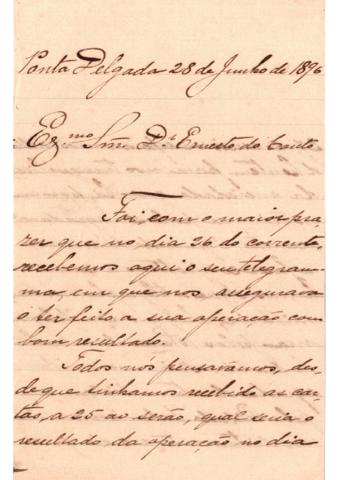 Ponta Delgada 28 de Junho de 1896
Ex.mo Snr. Dr. Ernesto do Canto
Foi com o maior pra-
zer que no dia 26 do corrente,
recebemos aqui o seu telegram-
ma, em que nos assegurava
o ter feito a sua operação com
bom resultado.
Todos nós pensavamos, des-
de que tinhamos recebido as car-
tas, a 25 ao serão, qual seria o
resultado da operação no dia